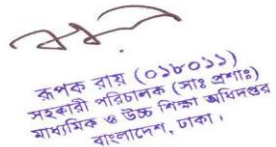 রূপক রায় (০১৮০১১)
সহকারী পরিচালক (সাঃ প্রশাঃ)
মাধ্যমিক ও উচ্চ শিক্ষা অধিদপ্তর
বাংলাদেশ, ঢাকা।